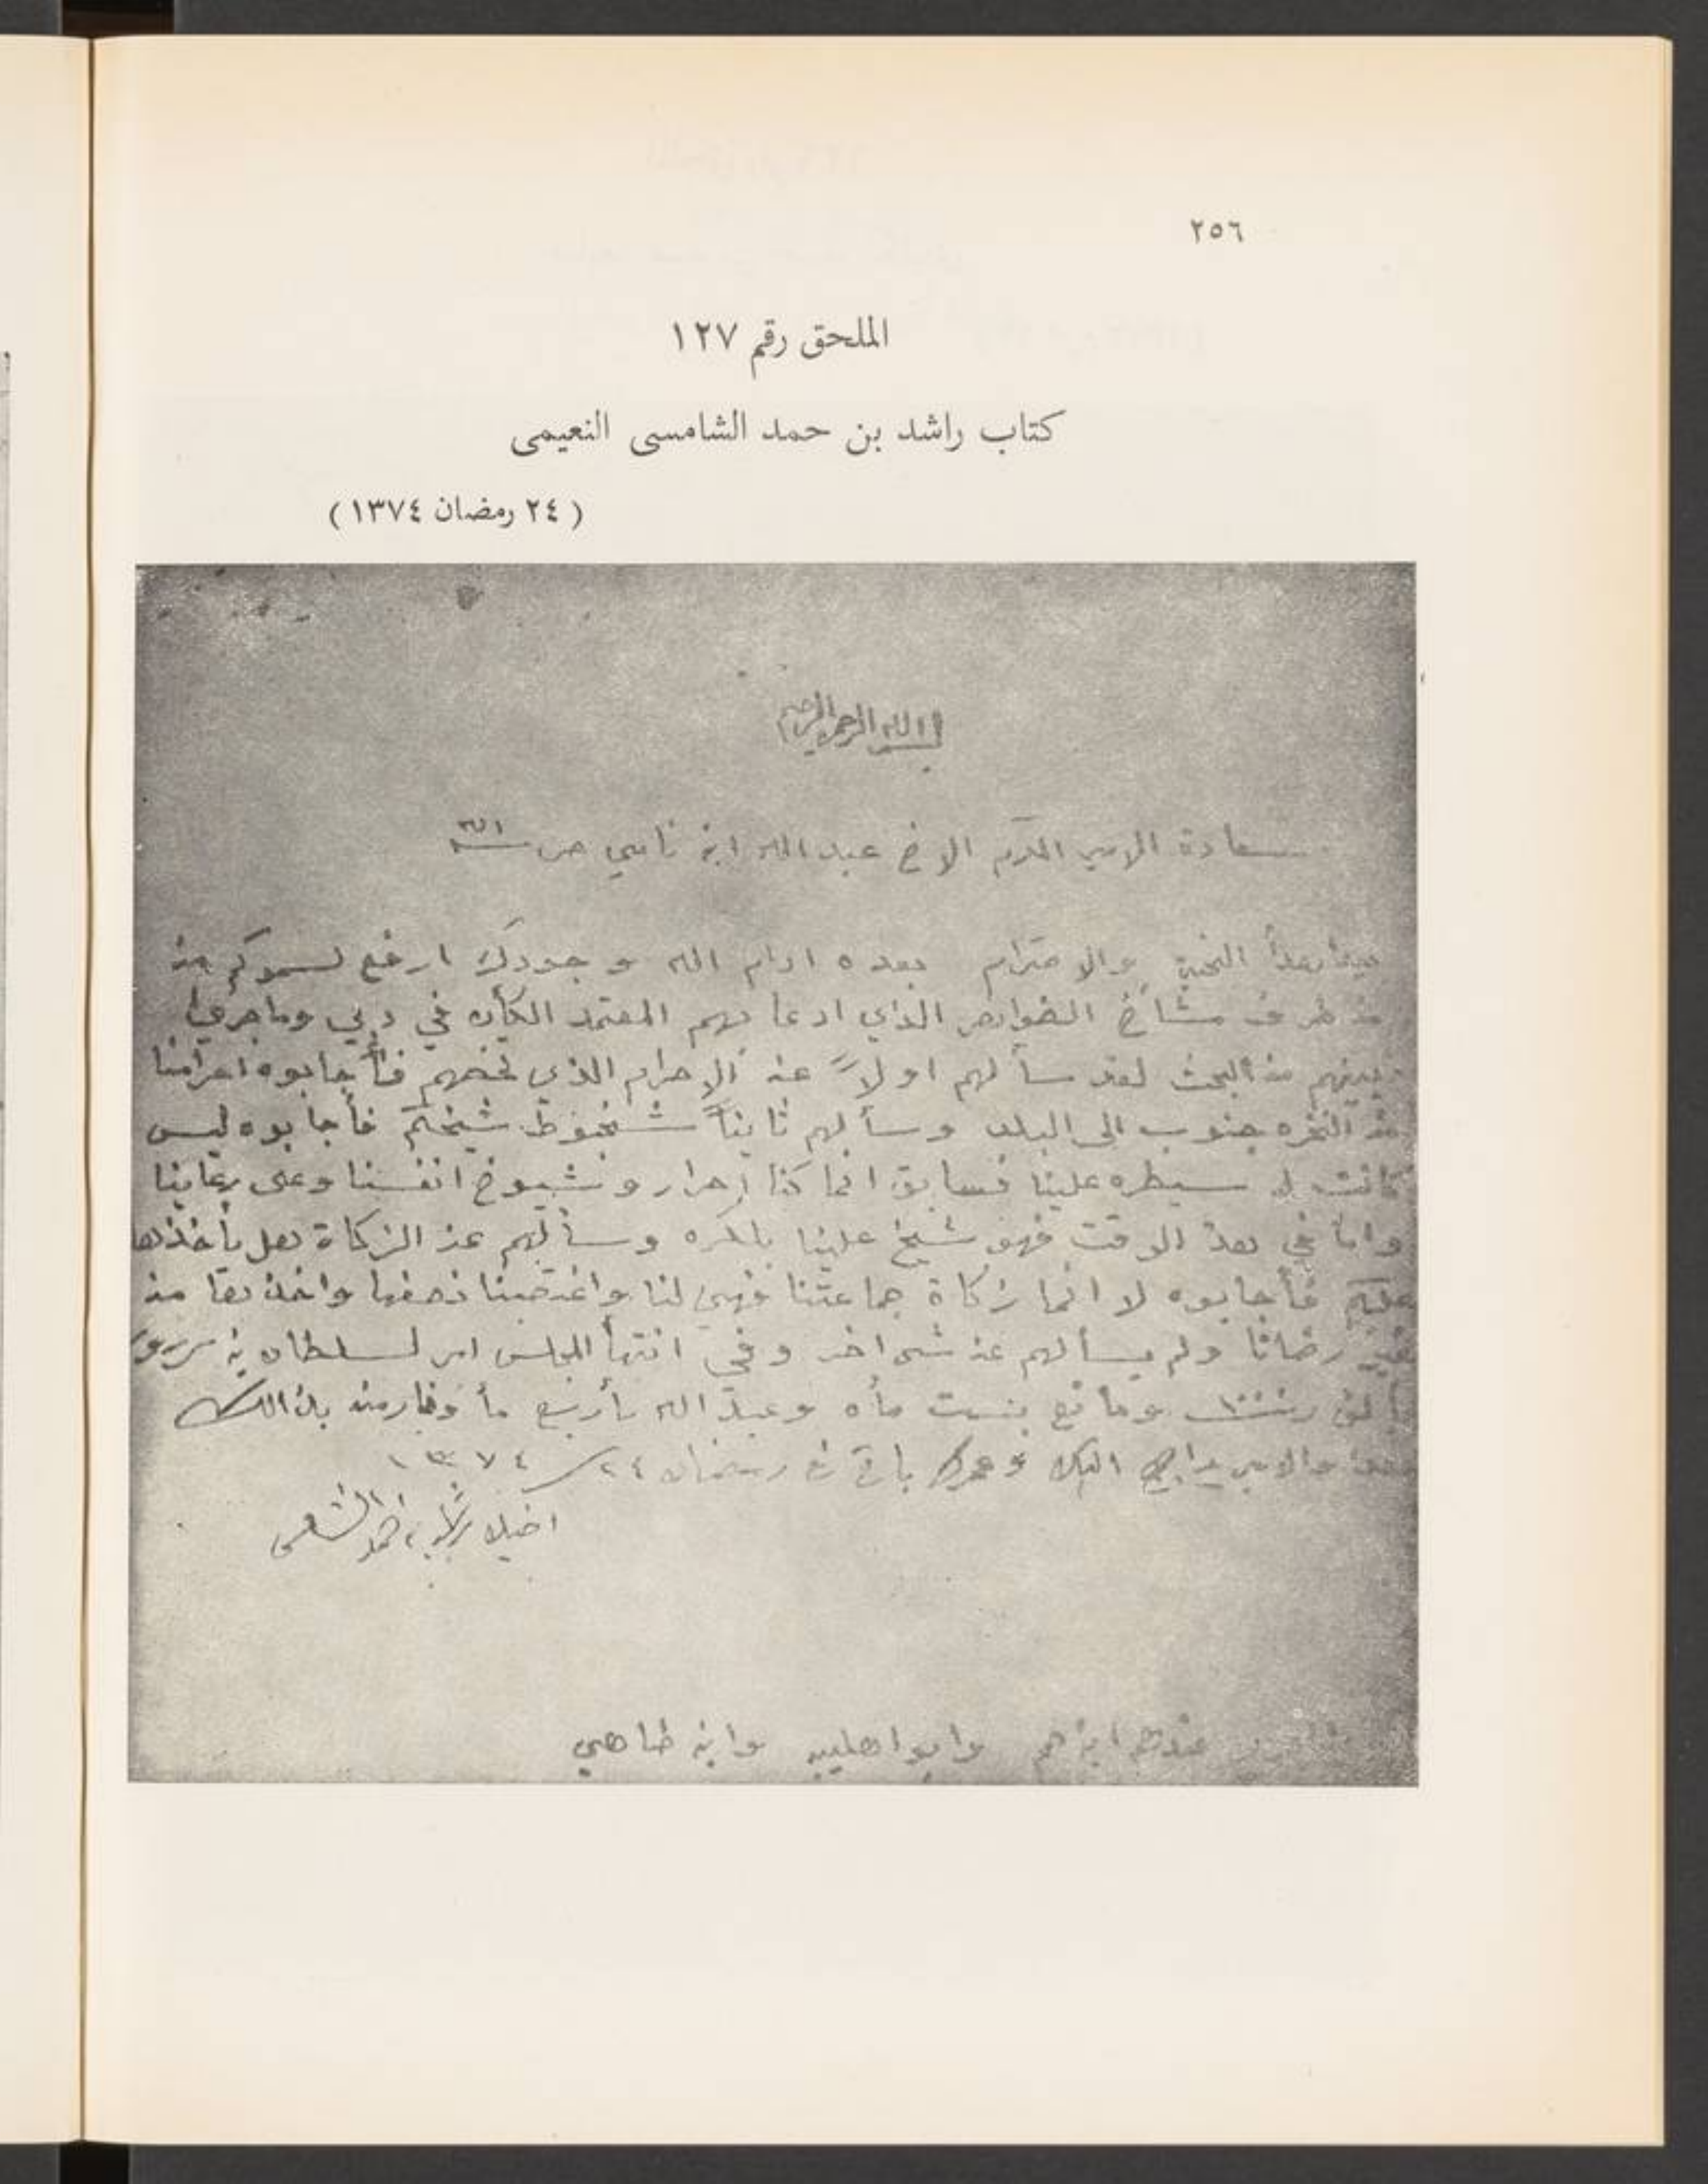 ٢٥٦
الملحق رقم ١٢٧
كتاب راشد بن حمد الشامسى النعيمى
( ٢٤ رمضان ١٣٧٤ )
بسم الله الرحمن الرحيم
سعادة الامير المكرم الاخ عبد الله ابن نامي
التحية والاحترام بعده ادام الله وجودك ارفع لسموكم من
من طرف مشائخ الضواهر الذاي ادعا بهم المعتمد الكائن في دبي وما جرى
بينهم من البحث لقد سألهم اولاً عن الاحرام الذي يخصهم فأجابوه احرامنا
من النقره جنوب الى البلد وسألهم ثانياً شخبوط شيختم فأجابوه ليس
كانت له سيطره علينا فسابق انما كنا احرار وشيوخ انفسنا وعلى رعاينا
واما في هذ الوقت فهو شيخ علينا بالكره وسألهم عن الزكاة هل يأخذها
عليكم فأجابوه لا انما زكاة جماعتنا فهي لنا واغتصبنا نصفها واخذها من
غير رضائنا ولم يسألهم عن شي اخر وفي انتها المجلس امر لسلطان بن سرور
بألف ومانع بست مأه وعبد الله بأربع مأ
والامير يراجع اليك وعمرك باقي في رمضان ٢٤ / ١٣٧٤
اخيك راشد بن احمد الشامسي
وابن ضاهي